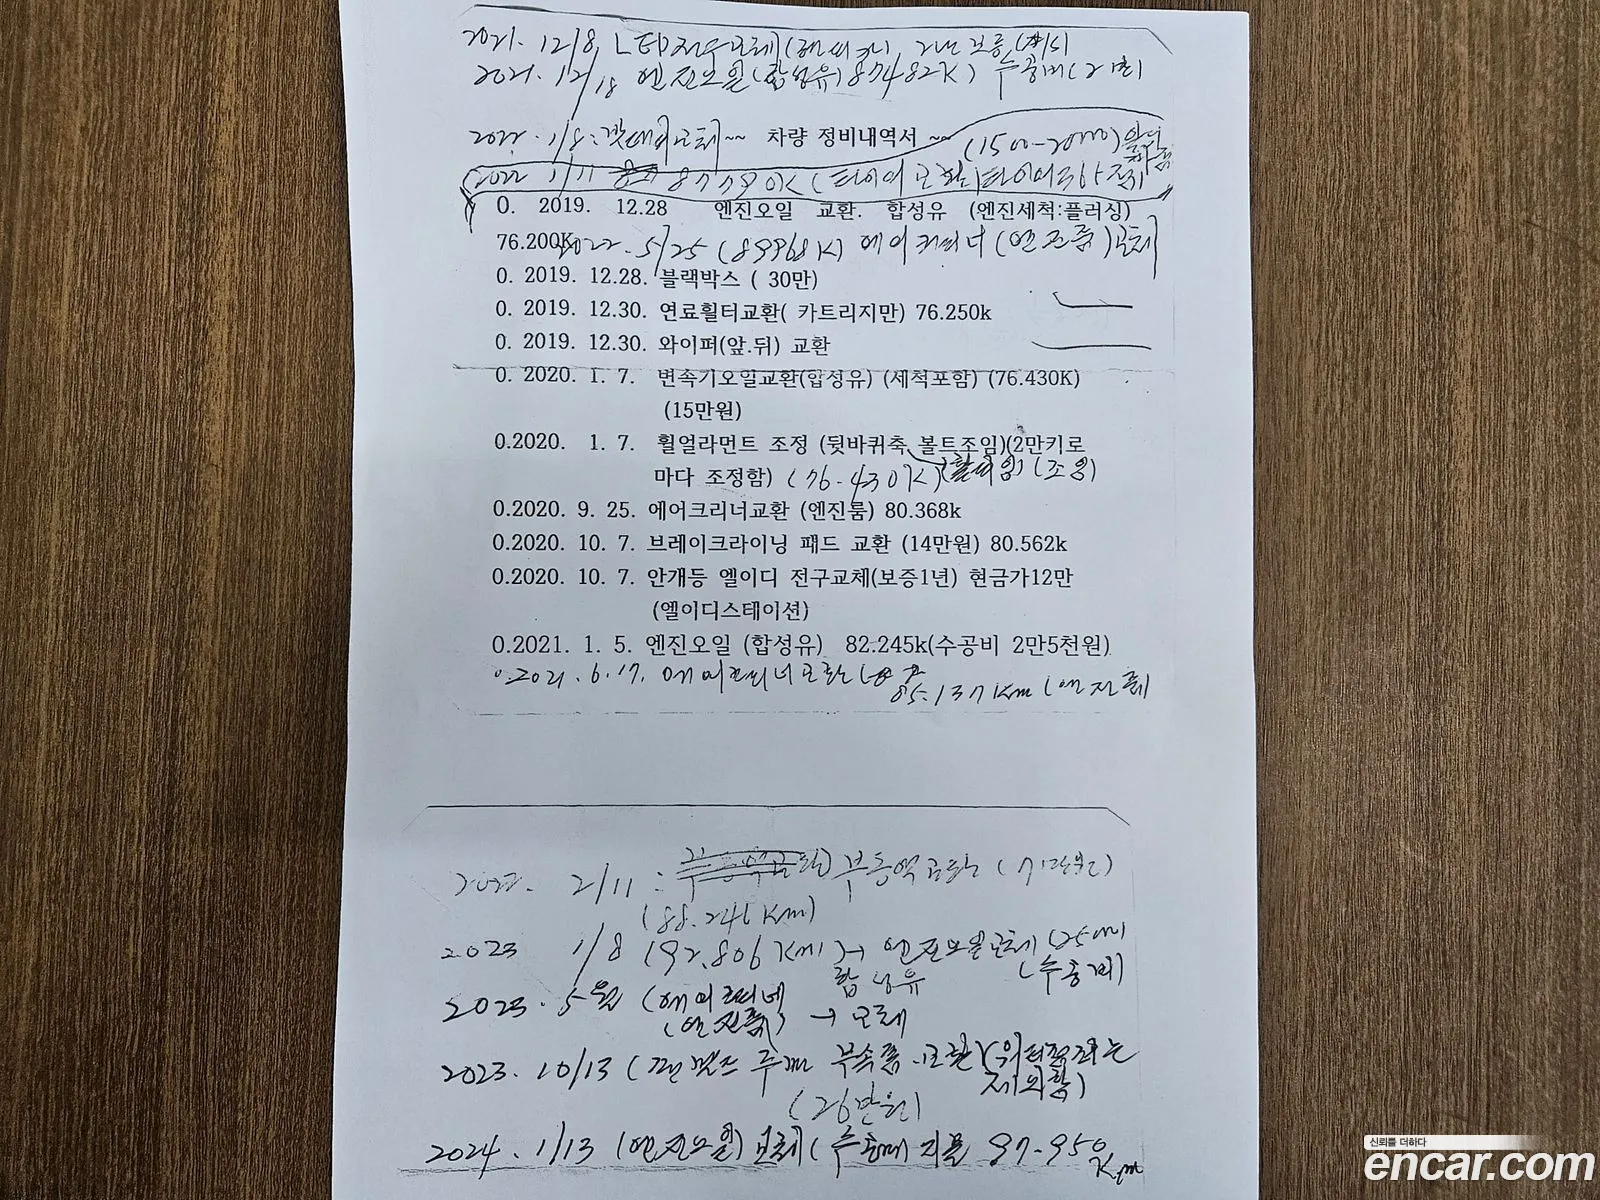 2021. 12/8, LED전구교체( 2년보증,
2021. 12/18 엔진오일(합성유) 87482K) 수공비(2만)
2022. 1/8: 교체~~ 차량 정비내역서 ~~ (1500-2000)
2022 1/11 87790K (타이어교환)타이어
O. 2019. 12.28 엔진오일 교환. 합성유 (엔진세척:플러싱)
76.200K 2022. 5/25 (89968K) 에어크리너(엔진룸)교체
0. 2019. 12.28. 블랙박스 ( 30만)
0. 2019. 12.30. 연료휠터교환( 카트리지만) 76.250k
0. 2019. 12.30. 와이퍼(앞.뒤) 교환
0. 2020. 1. 7. 변속기오일교환(합성유) (세척포함) (76.430K)
(15만원)
0.2020. 1. 7. 휠얼라먼트 조정 (뒷바퀴축 볼트조임)(2만키로
마다 조정함) (76.430K) (조임)
0.2020. 9. 25. 에어크리너교환 (엔진룸) 80.368k
0.2020. 10. 7. 브레이크라이닝 패드 교환 (14만원) 80.562k
0.2020. 10. 7. 안개등 엘이디 전구교체(보증1년) 현금가12만
(엘이디스테이션)
0.2021. 1. 5. 엔진오일 (합성유) 82.245k(수공비 2만5천원)
0.2021. 6.17. 에어크리너교환
85.137Km (엔진룸)
2022. 2/11 : 부동액교환 (7만원)
(88.246Km)
2023 1/8 (92.806Km) → 엔진오일교체
합성유 (수공비)
2023. 5월 (에어크리너
(엔진룸) → 교체
2023. 10/13 ( 부속품.교환)
제외함)
(26만원)
2024. 1/13 (엔진오일)교체 (수공비 지불 97.950
Km
신뢰를 더하다
encar.com